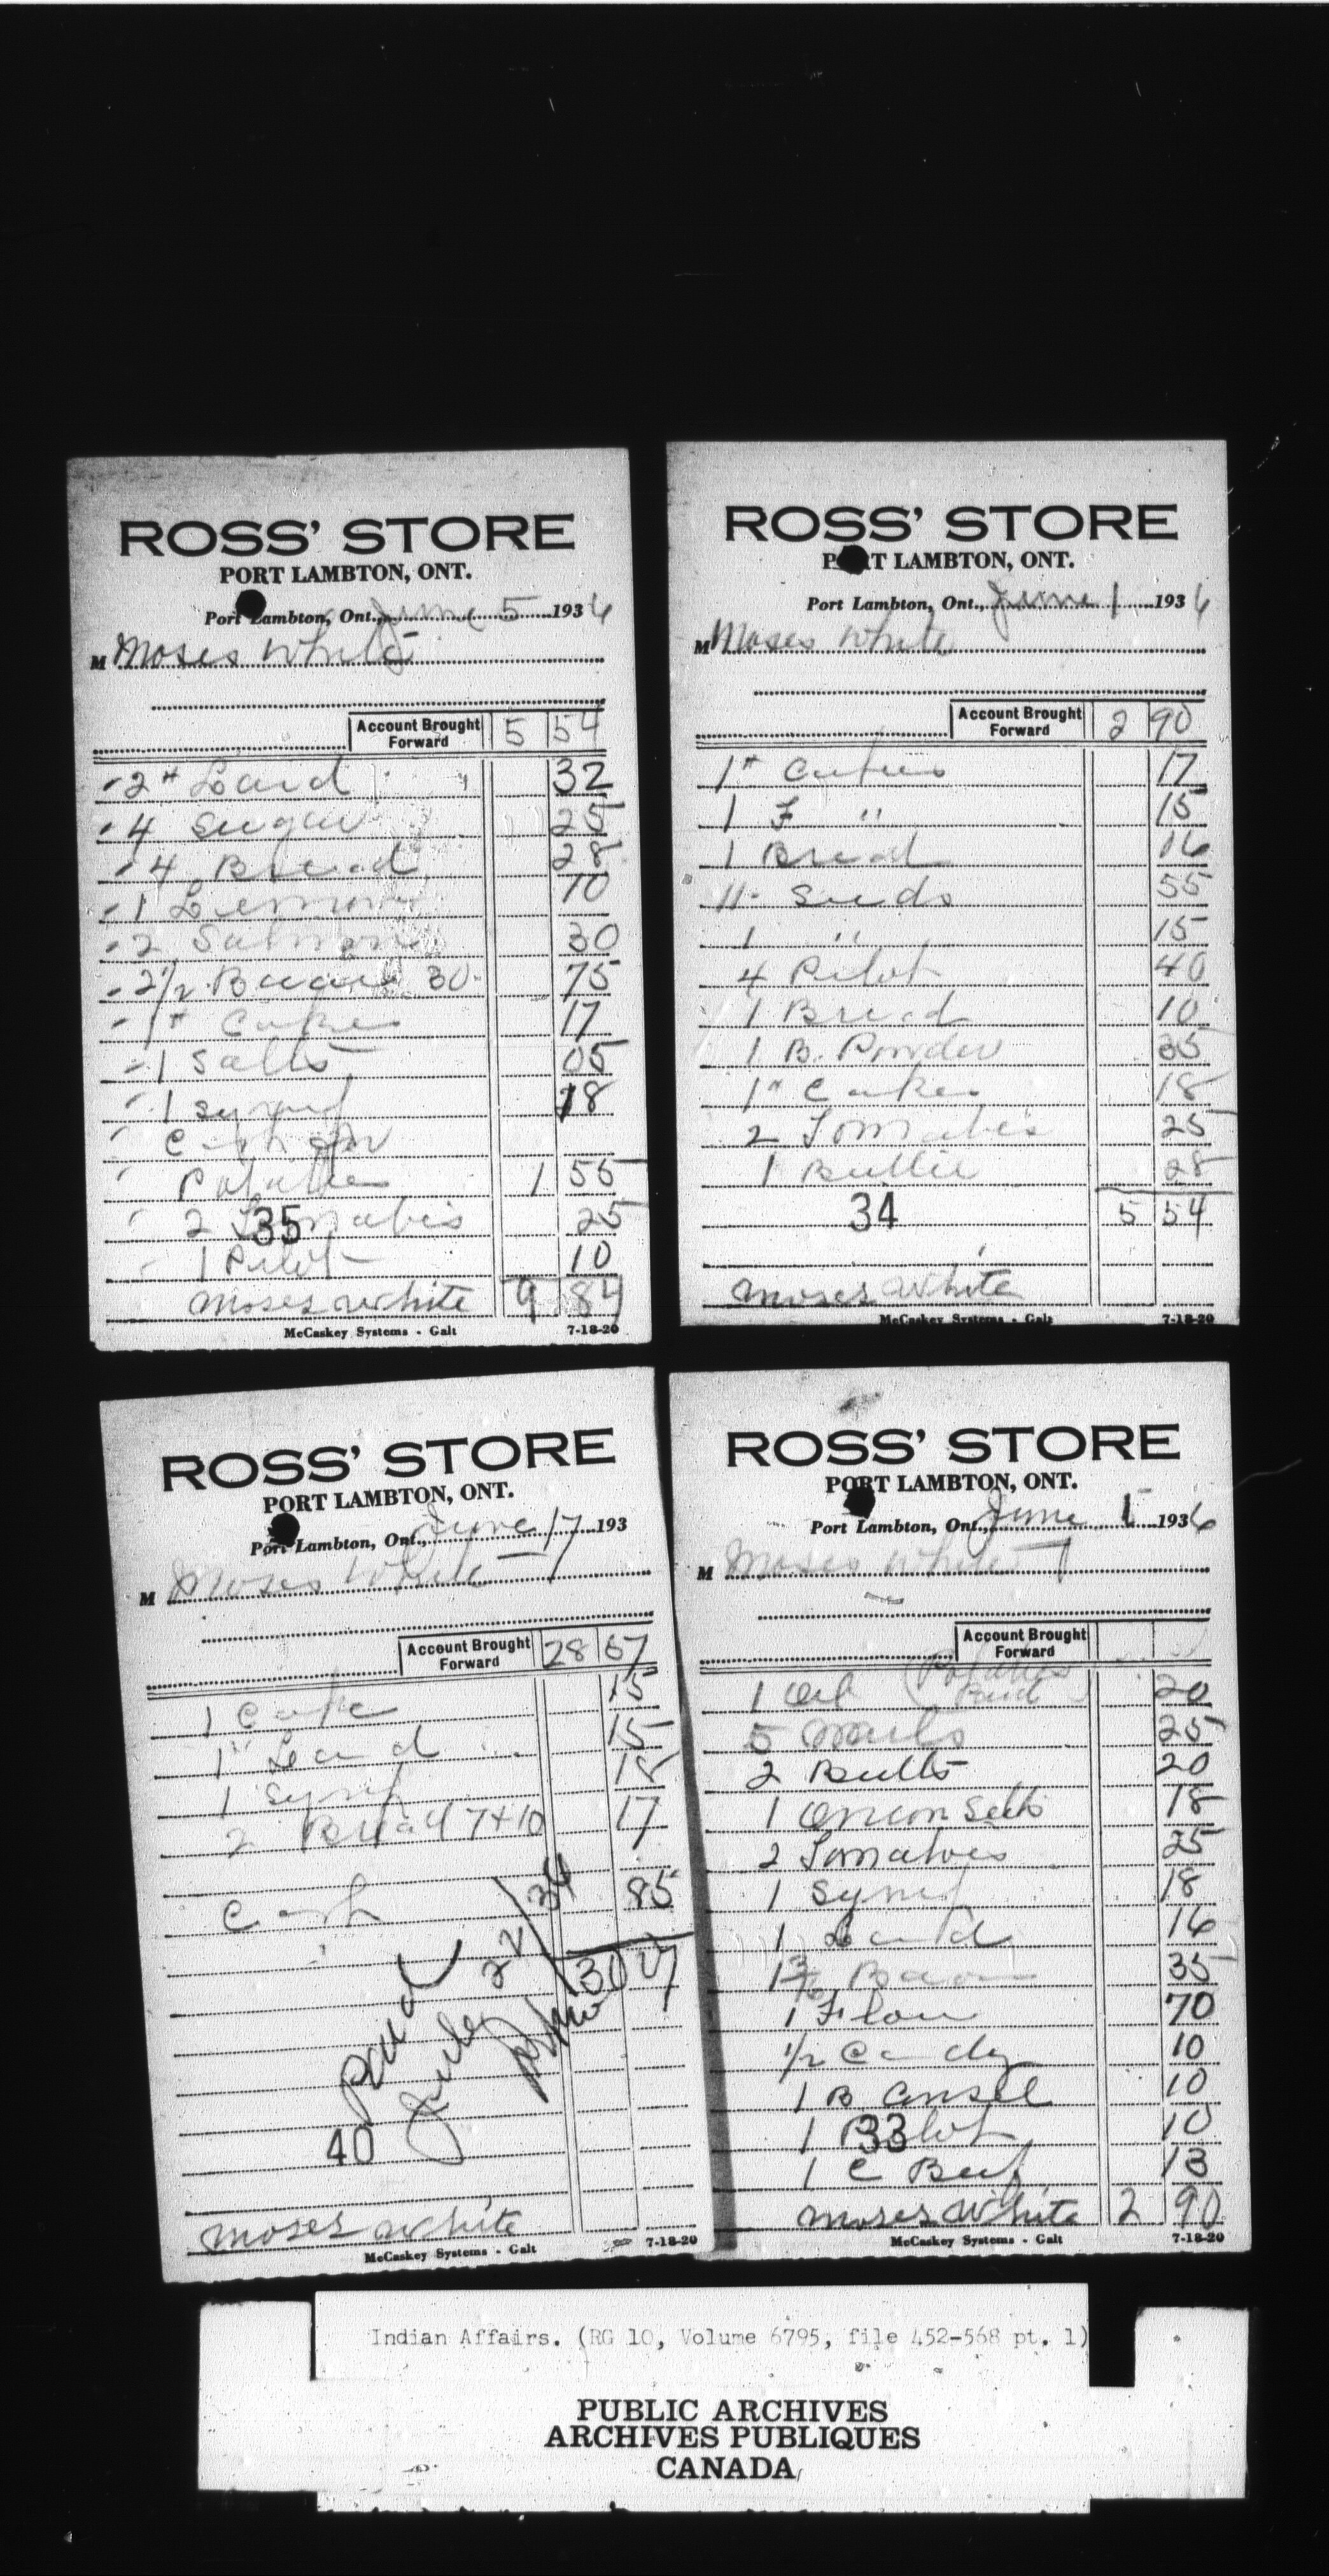 ROSS' STORE
PORT LAMBTON, ONT.
Port Lambton, Ont., June 5 1936
M Moses White
Account Brought Forward 5 54
2 # Lard 32
4 Sugar 25
4 Bread 28
1 Lemon 10
2 Salmon 30
2 1/2 Bacon 30 75
1 # Cakes 17
1 Salts 05
1 Syrup 18
Cash for
Potatoes 1 55
2 Tomatoes 25
35
1 Pilot 10
Moses White 9 84
McCaskey Systems - Galt 7-18-20
ROSS' STORE
PORT LAMBTON, ONT.
Port Lambton, Ont., June 1 1936
M Moses White
Account Brought Forward 2 90
1 # Cakes 17
1 F " 15
1 Bread 16
11 Seeds 55
1 " 15
4 Pilot 40
1 Bread 10
1 B. Powder 35
1 # Cakes 18
2 Tomatoes 25
1 Butter 28
34 5 54
Moses White
McCaskey Systems - Galt 7-18-20
ROSS' STORE
PORT LAMBTON, ONT.
Port Lambton, Ont., June 17 193
M Moses White
Account Brought Forward 28 57
1 Cake 15
1 # Lard 15
1 Syrup 18
2 Bread 7+10 17
Cash 85
30 07
Paid
40
Moses White
McCaskey Systems - Galt 7-18-20
ROSS' STORE
PORT LAMBTON, ONT.
Port Lambton, Ont., June 1 1936
M Moses White
Account Brought Forward
Potatoes
1 Oil 20
5 25
2 Bulbs 20
1 Onion Setts 18
2 Tomatoes 25
1 Syrup 18
1 Lard 16
1 Bacon 35
1 Flour 70
1/2 Candy 10
1 B 10
1 Pilot 10
33
1 C Beef 13
Moses White 2 90
McCaskey Systems - Galt 7-18-20
Indian Affairs. (RG 10, Volume 6795, file 452-568 pt. 1)
PUBLIC ARCHIVES
ARCHIVES PUBLIQUES
CANADA